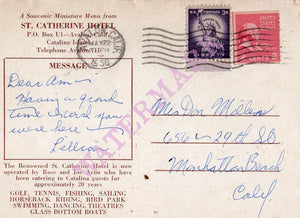 A Souvenir Miniature Menu from
ST. CATHERINE HOTEL
P.O. Box U1—Avalon, Calif.
Catalina Island
Telephone Avalon
MESSAGE
Dear Ann
Having a grand
time. Wish you
were here
The Renowned St. Catherine Hotel is now
operated by Rose and Joe Arms who
have been catering to Catalina guests for
approximately 20 years
GOLF, TENNIS, FISHING, SAILING
HORSEBACK RIDING, BIRD PARK
SWIMMING, DANCING, THEATRES
GLASS BOTTOM BOATS
1956
U.S. POSTAGE
3¢
2
Mrs Don
656 - 29th St
Manhattan Beach
Calif.
WATERMARK